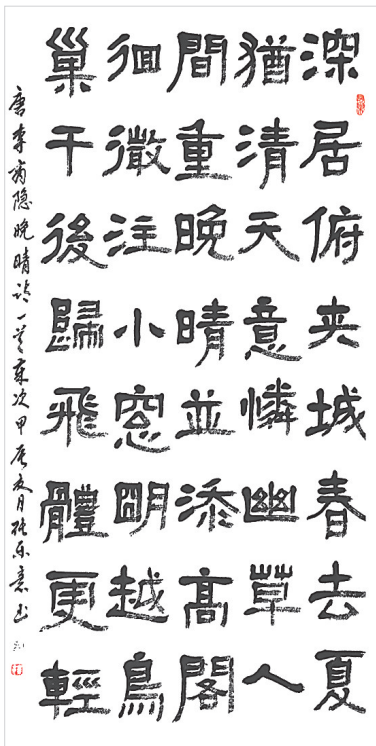 深居俯夾城春去夏
猶清天意憐幽草人
間重晚晴並添高閣
徊微注小窗明越鳥
巢干後歸飛體更輕
唐李商隐晚晴诗一首歲次甲辰夏月乐意书